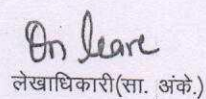 On leave
लेखाधिकारी(सा. अंके.)